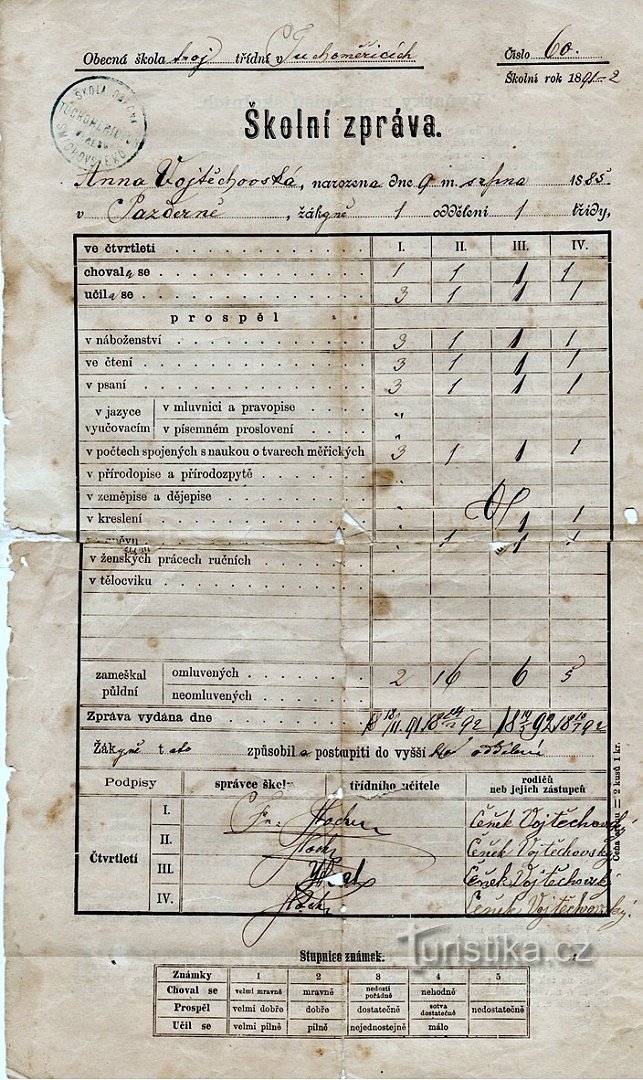 Obecná škola troj třídní v Tuchoměřicích
Číslo 60.
Školní rok 1891-2
ŠKOLA OBECNÁ
Školní zpráva.
Anna Vojtěchovská, narozena dne 9 m. srpna 1885
v Pazderně, žákyně 1 oddělení 1 třídy,
ve čtvrtletí I. II. III. IV.
chovala se 1 1 1 1
učila se 3 1 1 1
prospěl
v náboženství 3 1 1 1
ve čtení 3 1 1 1
v psaní 3 1 1 1
v jazyce vyučovacím
v mluvnici a pravopise "
v písemném proslovení "
v počtech spojených s naukou o tvarech měřických 3 1 1 1
v přírodopise a přírodozpytě
v zeměpise a dějepise
v kreslení 1 1
1 1 1
v ženských prácech ručních
v tělocviku
zameškal půldní
omluvených 2 16 6 5
neomluvených
Zpráva vydána dne
Žákyně tato způsobila postoupiti do vyšší ho oddělení
Podpisy správce školy třídního učitele rodičů neb jejich zástupců
Čtvrtletí
I. Čeněk Vojtěchovský
II. Čeněk Vojtěchovský
III. Čeněk Vojtěchovský
IV. Čeněk Vojtěchovský
= 2 kusů 1 kr.
Turistika.cz
Stupnice známek.
Známky 1 2 3 4 5
Choval se velmi mravně mravně nedosti pořádně nehodně
Prospěl velmi dobře dobře dostatečně sotva dostatečně nedostatečně
Učil se velmi pilně pilně nejednostejně málo